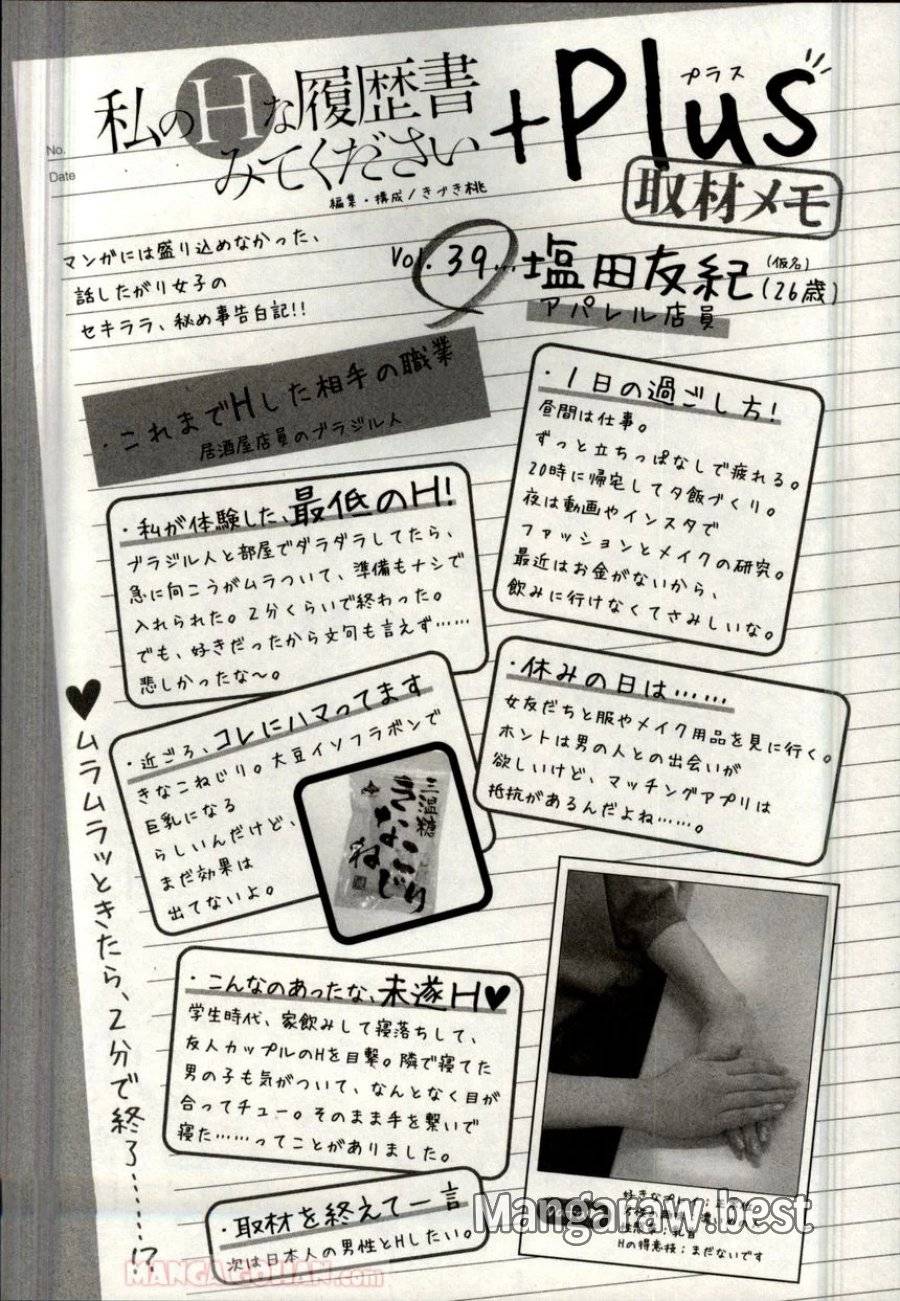 私のHな履歴書
みてください
+Plus
プラス
取材メモ
編集・構成/きづき桃
No.
Date
マンガには盛り込めなかった、
話したがり女子の
セキララ、秘め事告白記!!
Vol.39…塩田友紀
(仮名)
(26歳)
アパレル店員
・これまでHした相手の職業
居酒屋店員のブラジル人
・1日の過ごし方!
昼間は仕事。
ずっと立ちっぱなしで疲れる。
20時に帰宅して夕飯づくり。
夜は動画やインスタで
ファッションとメイクの研究。
最近はお金がないから、
飲みに行けなくてさみしいな。
・私が体験した、最低のH!
ブラジル人と部屋でダラダラしてたら、
急に向こうがムラついて、準備もナシで
入れられた。2分くらいで終わった。
でも、好きだったから文句も言えず……
悲しかったな〜。
・休みの日は……
女友だちと服やメイク用品を見に行く。
ホントは男の人との出会いが
欲しいけど、マッチングアプリは
抵抗があるんだよね……。
・近ごろ、コレにハマってます
きなこねじり。大豆イソフラボンで
巨乳になる
らしいんだけど、
まだ効果は
出てないよ。
三温糖
きなこ
ねじり
・こんなのあったな、未遂H♥
学生時代、家飲みして寝落ちして、
友人カップルのHを目撃。隣で寝てた
男の子も気がついて、なんとなく目が
合ってチュー。そのまま手を繋いで
寝た……ってことがありました。
・取材を終えて一言
次は日本人の男性とHしたい。
♥ムラムラッときたら、2分で終了………!?
Hの得意技:まだないです
Mangaraw.best
MANGAGOHAN.com